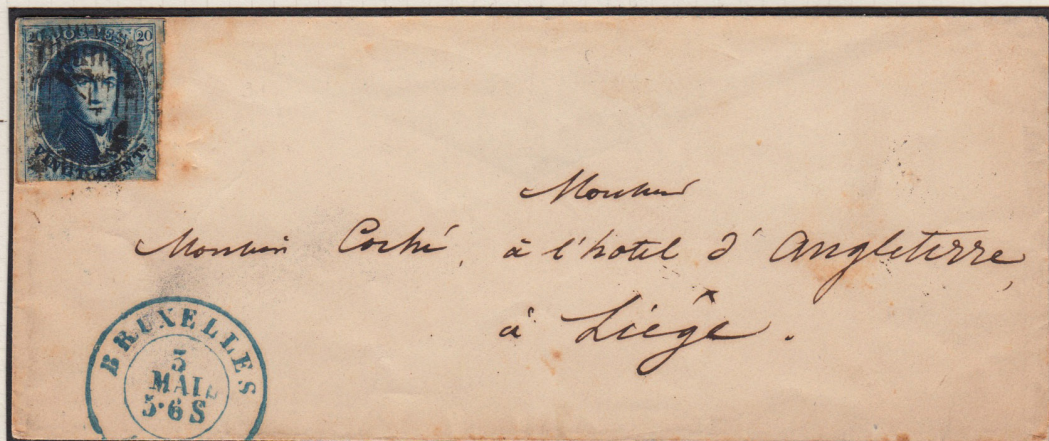 20 20
VINGT CENTS
Monsieur
Monsieur Coché, à l'hotel d'Angleterre,
à Liége.
BRUXELLES
3
MAI
5·6 S